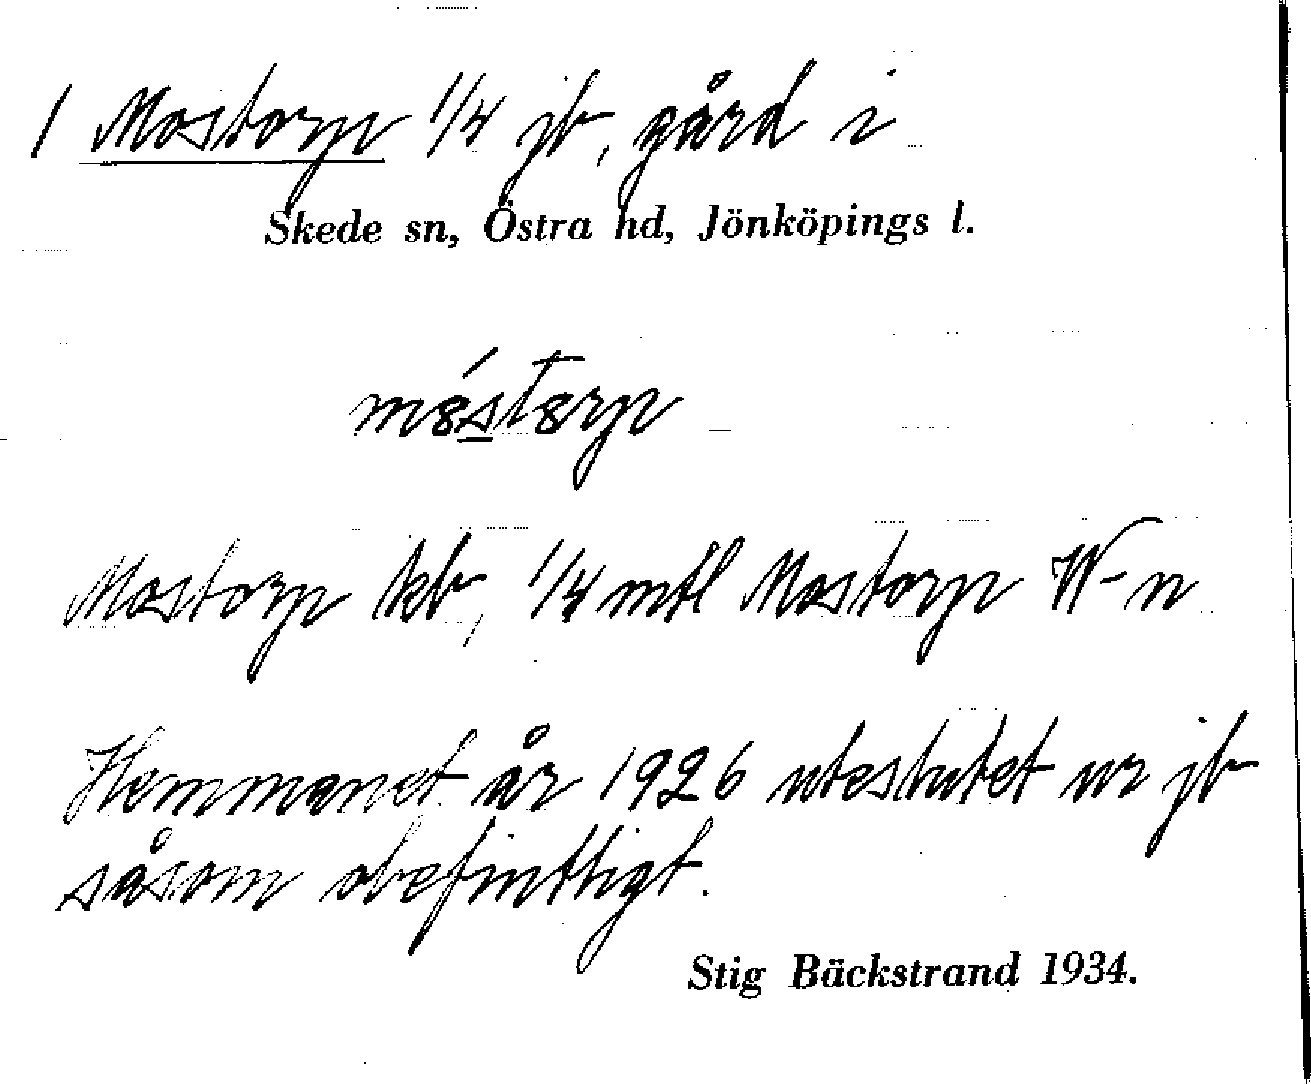 1 Mostorp 1/4 jb, gård i
Skede sn, Östra hd, Jönköpings l.
mo̊́storp
Mostorp kb, 1/4 mtl Mostorp W-n
Hemmanet år 1926 uteslutet ur jb
såsom obefintligt.
Stig Bäckstrand 1934.